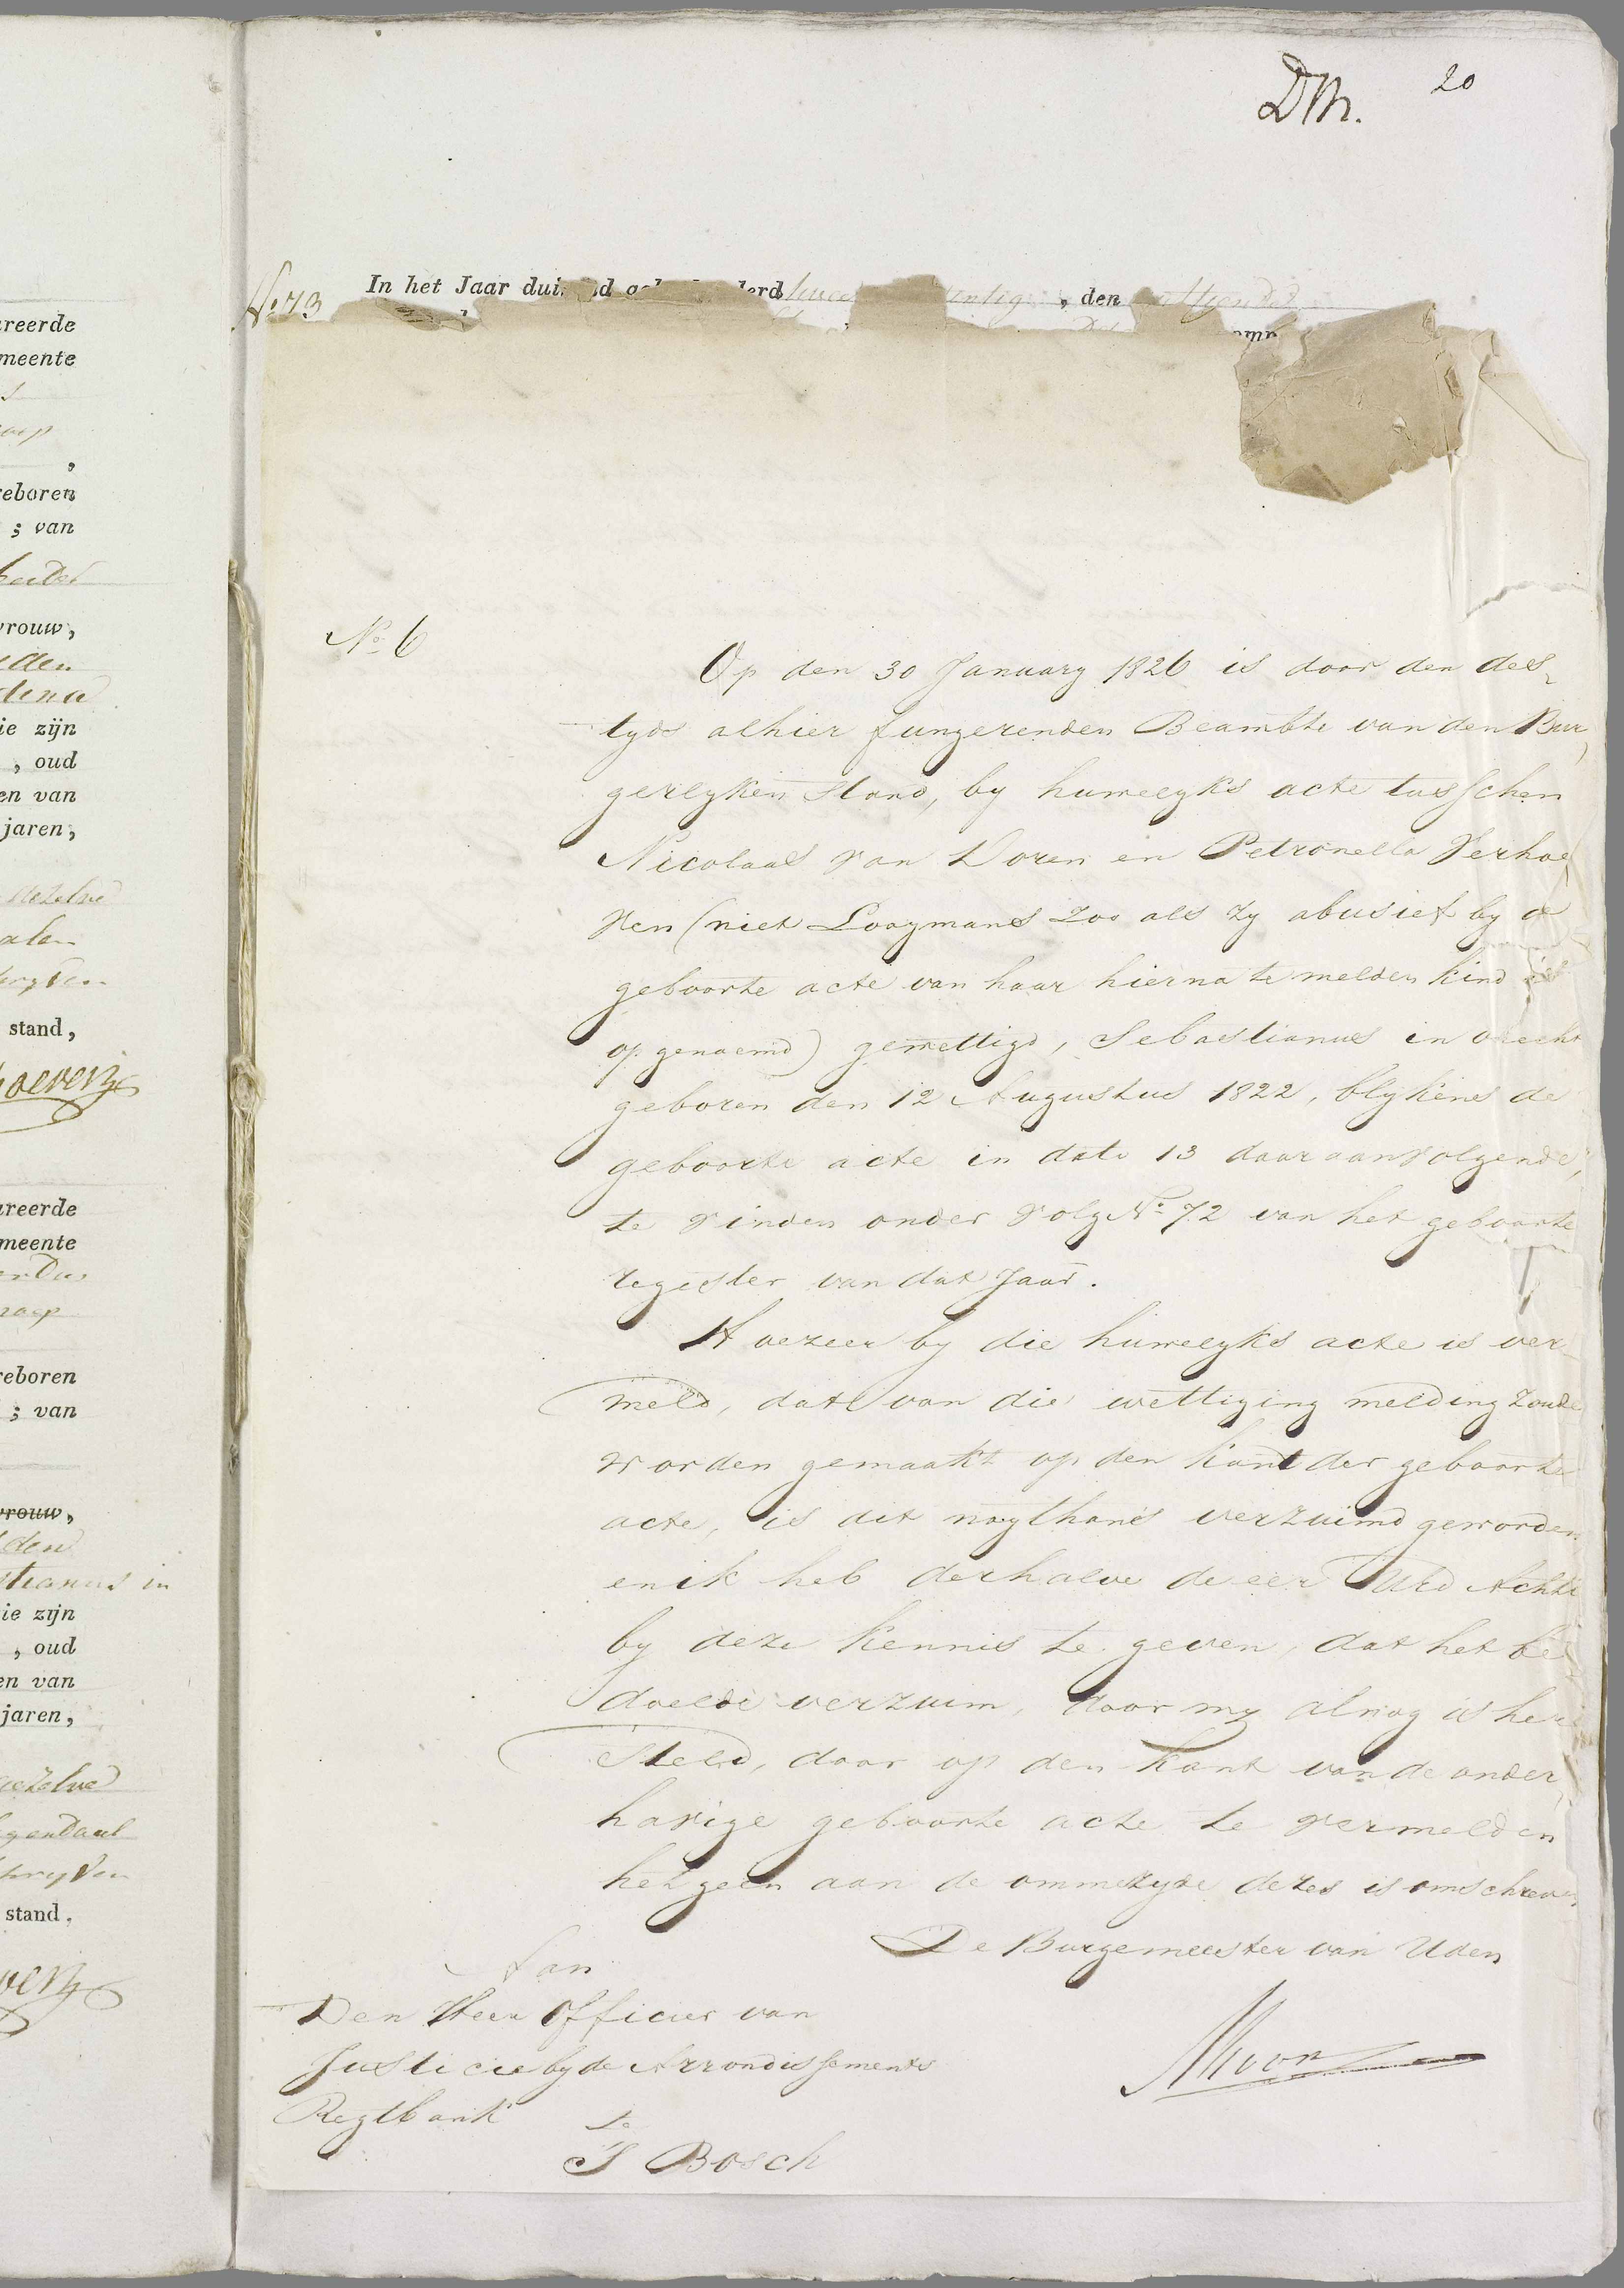 DM. 20
reerde
meente
eboren
; van
vrouw,
ie zijn
, oud
en van
jaren,
stand,
reerde
meente
eboren
; van
vrouw,
stianus in
ie zijn
, oud
en van
jaren,
stand.
No 73 In het Jaar , den
No. 6
Op den 30 January 1826 is door den des-
tyds alhier fungerenden Beambte van den Bur-
gerlyken Stand, by huwelyks acte tusschen
Nicolaas van Doren en Petronella Verhoe-
ven (niet Looymans Zoo als zy abusief by de
geboorte acte van haar hierna te melden kind is
opgenoemd) gewettigd, Sebastianus in onecht
geboren den 12 Augustus 1822, blykens de
geboorte acte in dato 13 daaraanvolgende,
te vinden onder volg No. 72 van het geboorte
register van dat Jaar.
Hoezeer by die huwelyks acte is ver-
meld, dat van die wettiging melding zoude
worden gemaakt op den kant der geboorte
acte, is dit nogthans verzuimd geworden
en ik heb derhalve de eer UEd Achtb
by deze kennis te geven, dat het be-
doelde verzuim, door my alnog is her-
steld, door op den kant van de onder-
havige geboorte acte te vermelden
hetgeen aan de ommezyde dezes is omschreven
De Burgemeester van Uden
Aan
Den Heer Officier van
Justicie by de Arrondissements
Regtbank
te
S Bosch